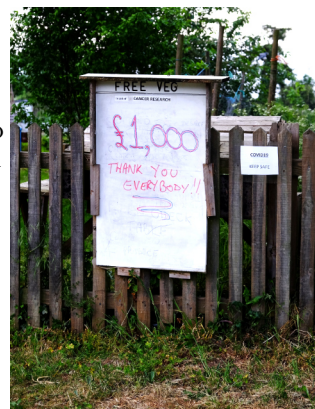 FREE VEG
CANCER RESEARCH
£1,000
THANK YOU
EVERYBODY!!
COVID19
KEEP SAFE